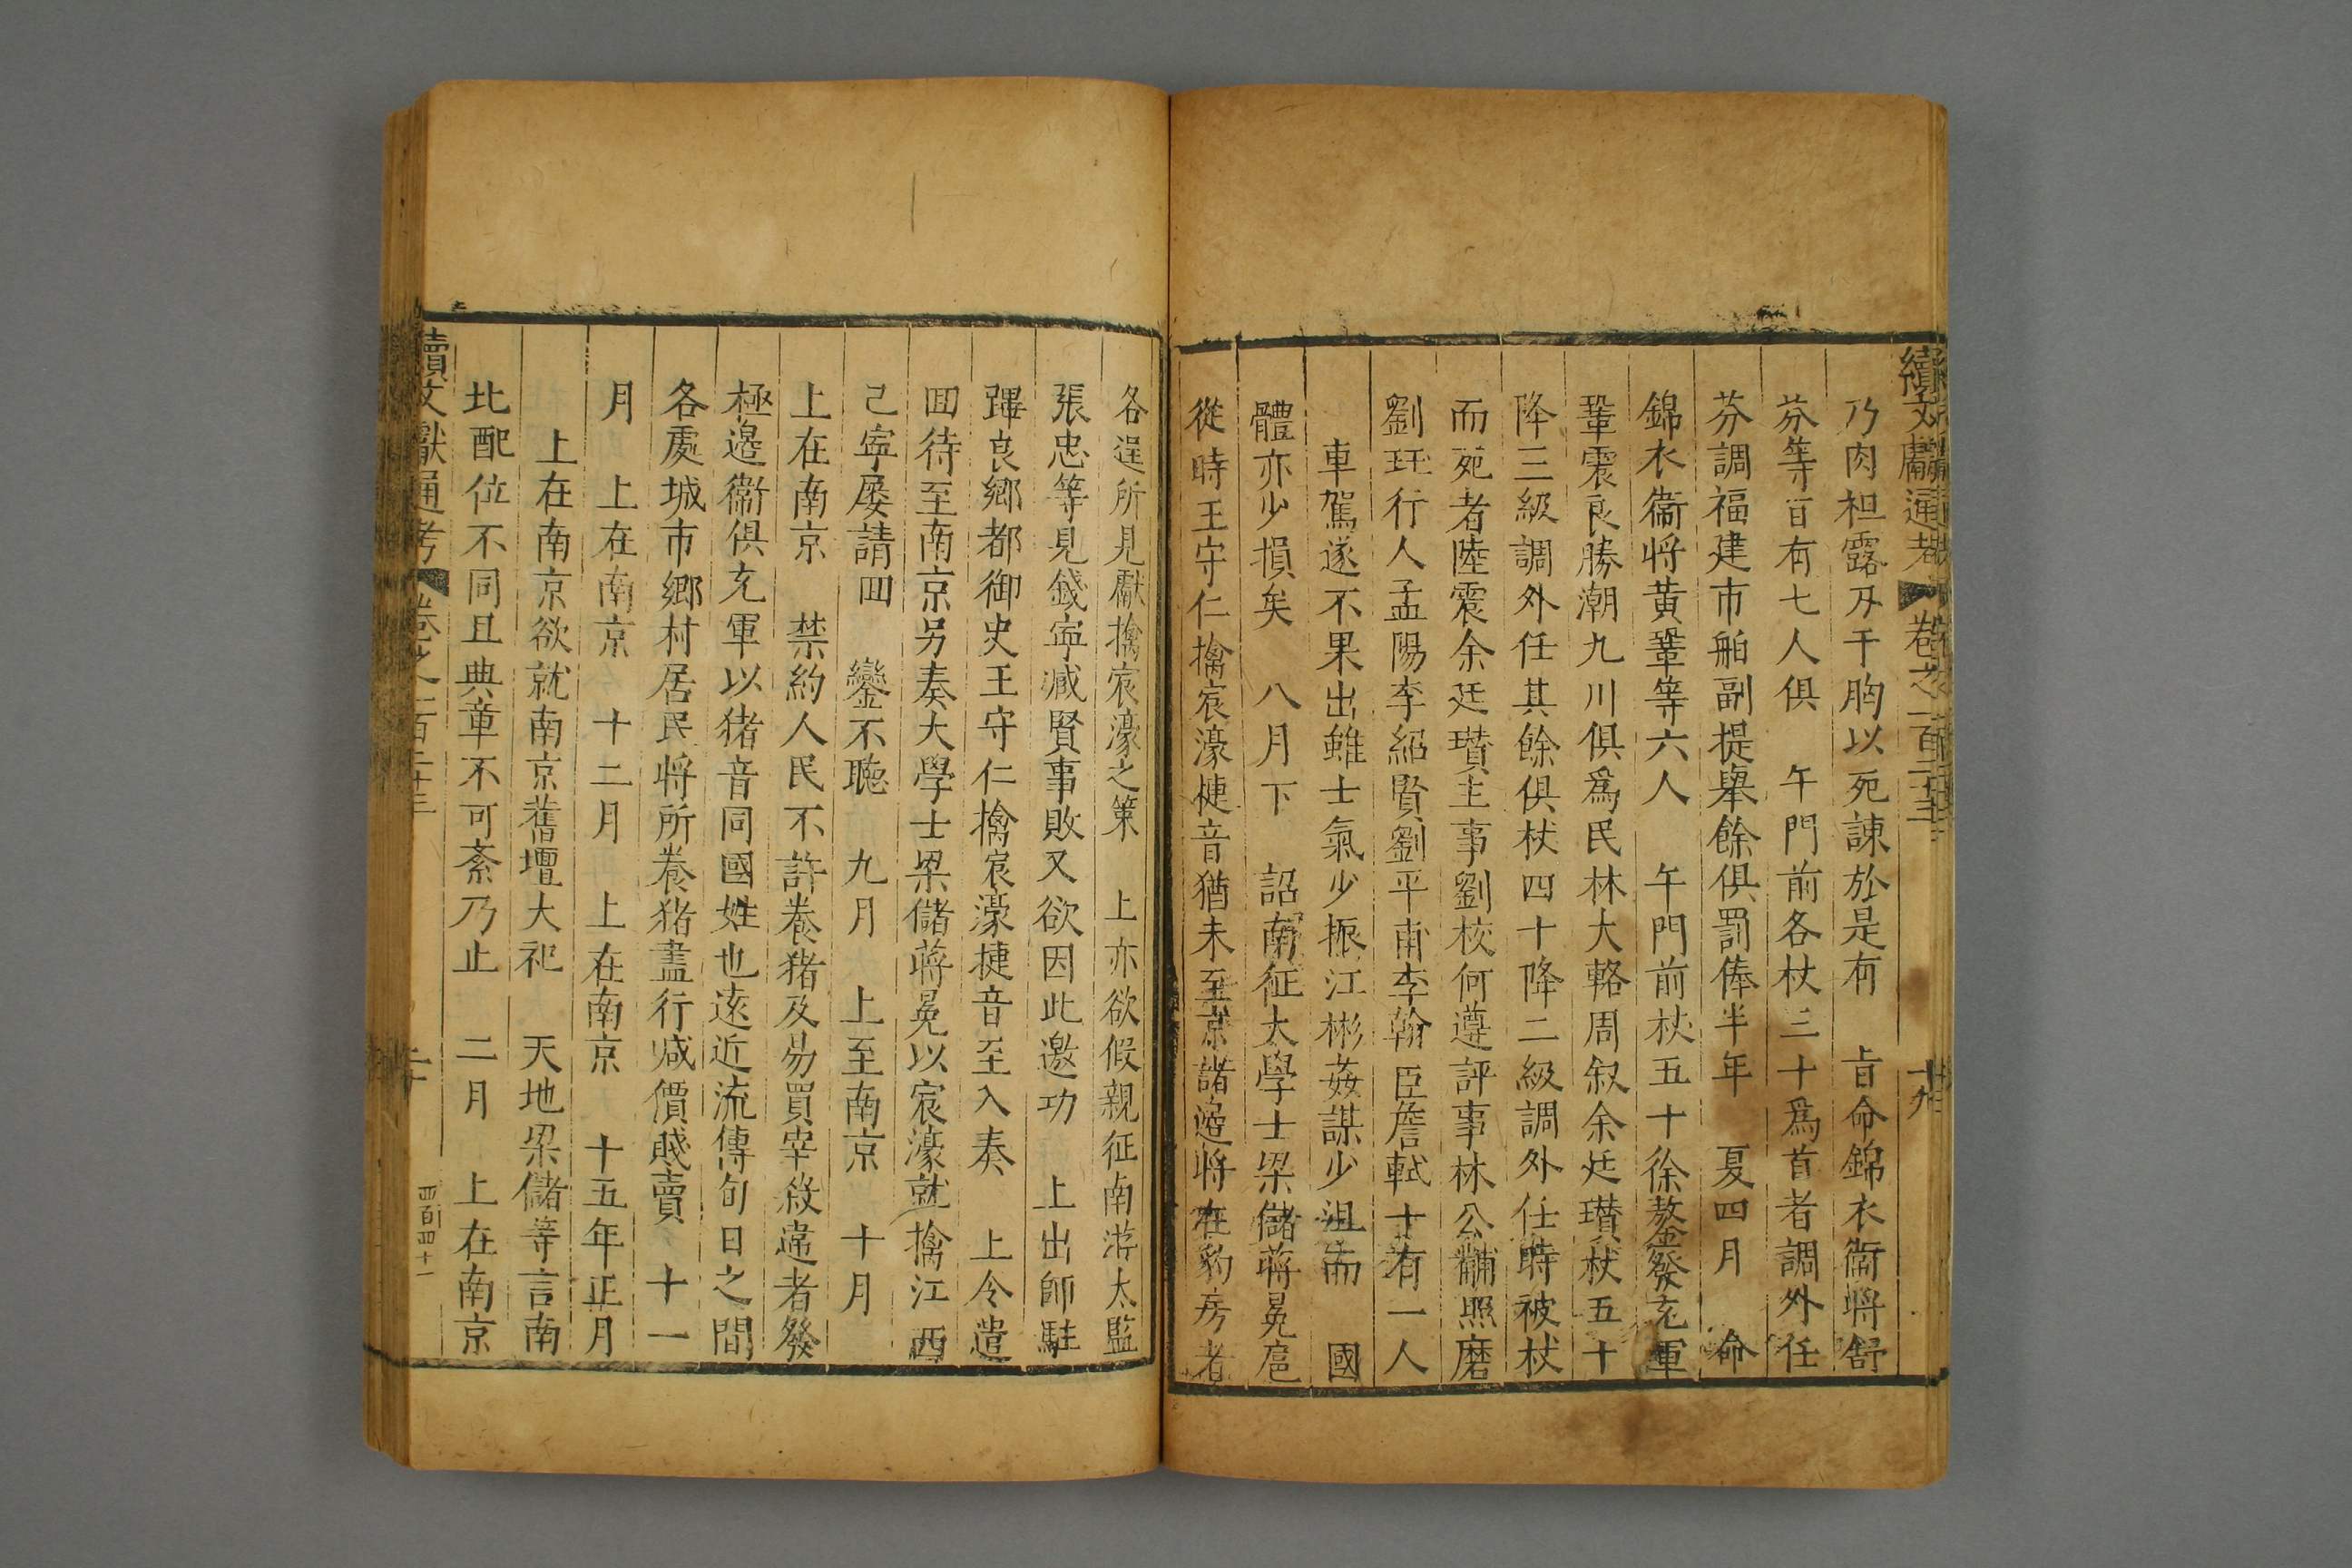 續文獻通考 卷之一百三十三 十九
乃肉袒露刃于胸以死諫於是有 旨命錦衣衛將舒
芬等百有七人俱 午門前各杖三十爲首者調外任
芬調福建市舶副提舉餘俱罰俸半年 夏四月 命
錦衣衛將黃鞏等六人 午門前杖五十徐鏊發充軍
鞏震良勝潮九川俱爲民林大輅周叙余廷瓚杖五十
降三級調外任其餘俱杖四十降二級調外任時被杖
而死者陸震余廷瓚主事劉校何遵評事林公黼照磨
劉珏行人孟陽李紹賢劉平甫李翰臣詹軾十有一人
車駕遂不果出雖士氣少振江彬姦謀少沮而 國
體亦少損矣 八月下 詔南征大學士梁儲蔣冕扈
從時王守仁擒宸濠㨗音猶未至京諸邊將在豹房者
各逞所見獻擒宸濠之策 上亦欲假親征南游太監
張忠等見錢寧臧賢事敗又欲因此邀功 上出師駐
蹕良鄉都御史王守仁擒宸濠捷音至入奏 上令遣
囬待至南京另奏大學士梁儲蔣冕以宸濠就擒江西
己寧屡請囬 鑾不聽 九月 上至南京 十月
上在南京 禁約人民不許養猪及易買宰殺違者發
極邊衞俱充軍以猪音同國姓也遠近流傳旬日之間
各處城市鄉村居民將所養猪盡行减價賤賣 十一
月 上在南京 十二月 上在南京 十五年正月
上在南京欲就南京舊壇大祀 天地梁儲等言南
北配位不同且典章不可紊乃止 二月 上在南京
續文獻通考 卷之一百三十三 二十 四百四十一